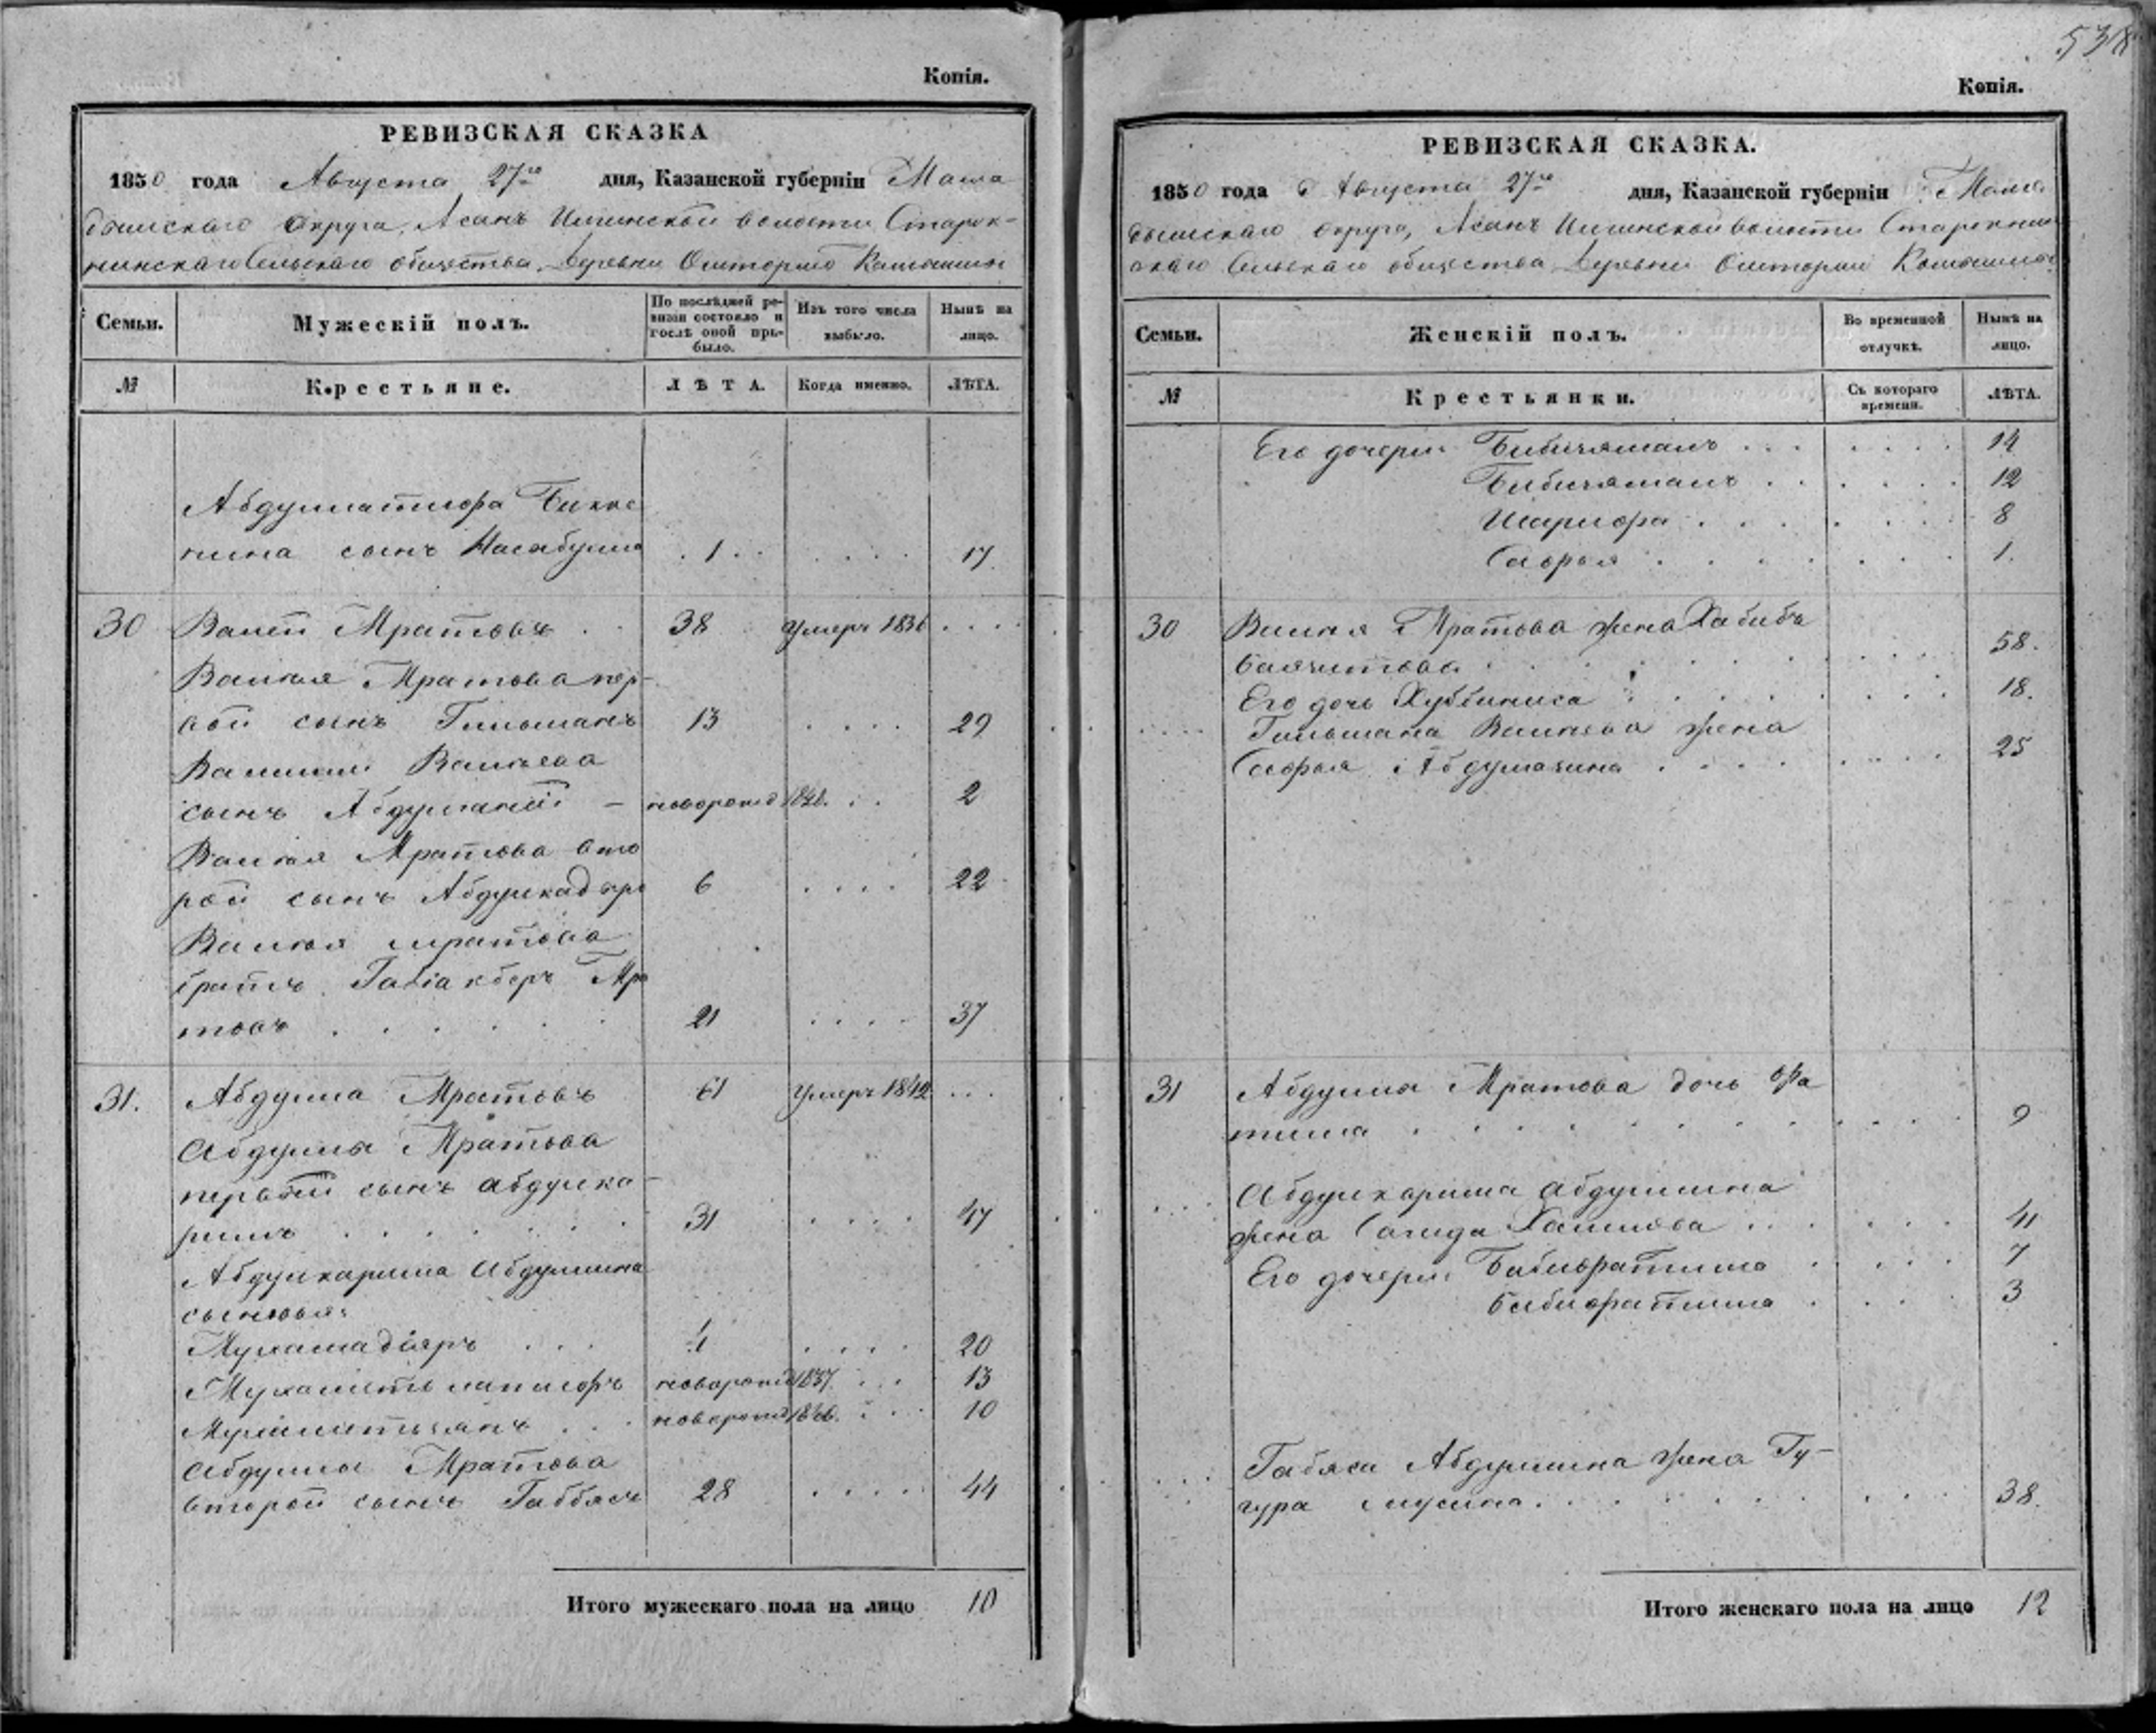 Копія.
РЕВИЗСКАЯ СКАЗКА
1850 года Августа 27го дня, Казанской губерніи Мама
дышскаго Округа, Асанъ Илгинской волости Старок-
нинскаго Сельскаго общества Деревни
Семьи. Мужескій полъ. По послѣдней ре-
визіи состояло и
послѣ оной при-
было. Изъ того числа
выбыло. Нынѣ на
лицо.
№ Крестьяне. ЛѢТА. Когда именно. ЛѢТА.
Абдуллатифа Бикке
нина сынъ 1 17
30 Валей Мратовъ 38 умеръ 1836
Валея Мратова пер-
вой сынъ Гильманъ 13 29
Валеева
сынъ Абдулганей новорожд 1848. 2
Валея Мратова вто
рой сынъ Абдулкадыръ 6 22
Валея Мратова
братъ Галіакберъ Мра
товъ 21 37
31. Абдулла Мратовъ 61 умеръ 1842
Абдуллы Мратова
первой сынъ Абдулка-
римъ 31 47
Абдулкарима Абдуллина
сыновья:
Мухамадіяръ 4 20
Мухаметьлатифъ новорожд 1837. 13
Мухаметьянъ новорожд 10
Абдуллы Мратова
второй сынъ Габбясъ 28 44
Итого мужескаго пола на лицо 10
538
Копія.
РЕВИЗСКАЯ СКАЗКА.
1850 года Августа 27го дня, Казанской губерніи Мама
дышскаго округа, Асанъ Илгинской волости Старокнин
скаго Сельскаго общества Деревни
Семьи. Женскій полъ. Во временной
отлучкѣ. Нынѣ на
лицо.
№ Крестьянки. Съ котораго
времени. ЛѢТА.
Его дочери Бибичямалъ 14
Бибичямалъ 12
Шарифа 8
Сафья 1.
30 Валея Мратова жена Хабиба
Баязитова 58.
Его дочь Хуббиниса 18.
Гильмана Валеева жена
Сафья Абдулвагина 25
31 Абдуллы Мратова дочь Фа
тима 9
Абдулкарима Абдуллина
жена Сагида Халилова 41
Его дочери Бибифатима 7
Бибифатима 3
Габяса Абдуллина жена Гу-
гура Мусина 38.
Итого женскаго пола на лицо 12